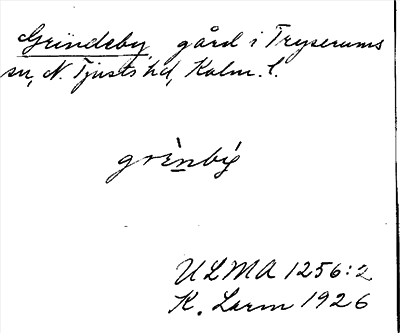 Grindeby, gård i Tryserums
sn, N. Tjusts hd, Kalm. l.
grìnbý
ULMA 1256:2
K. Larm 1926